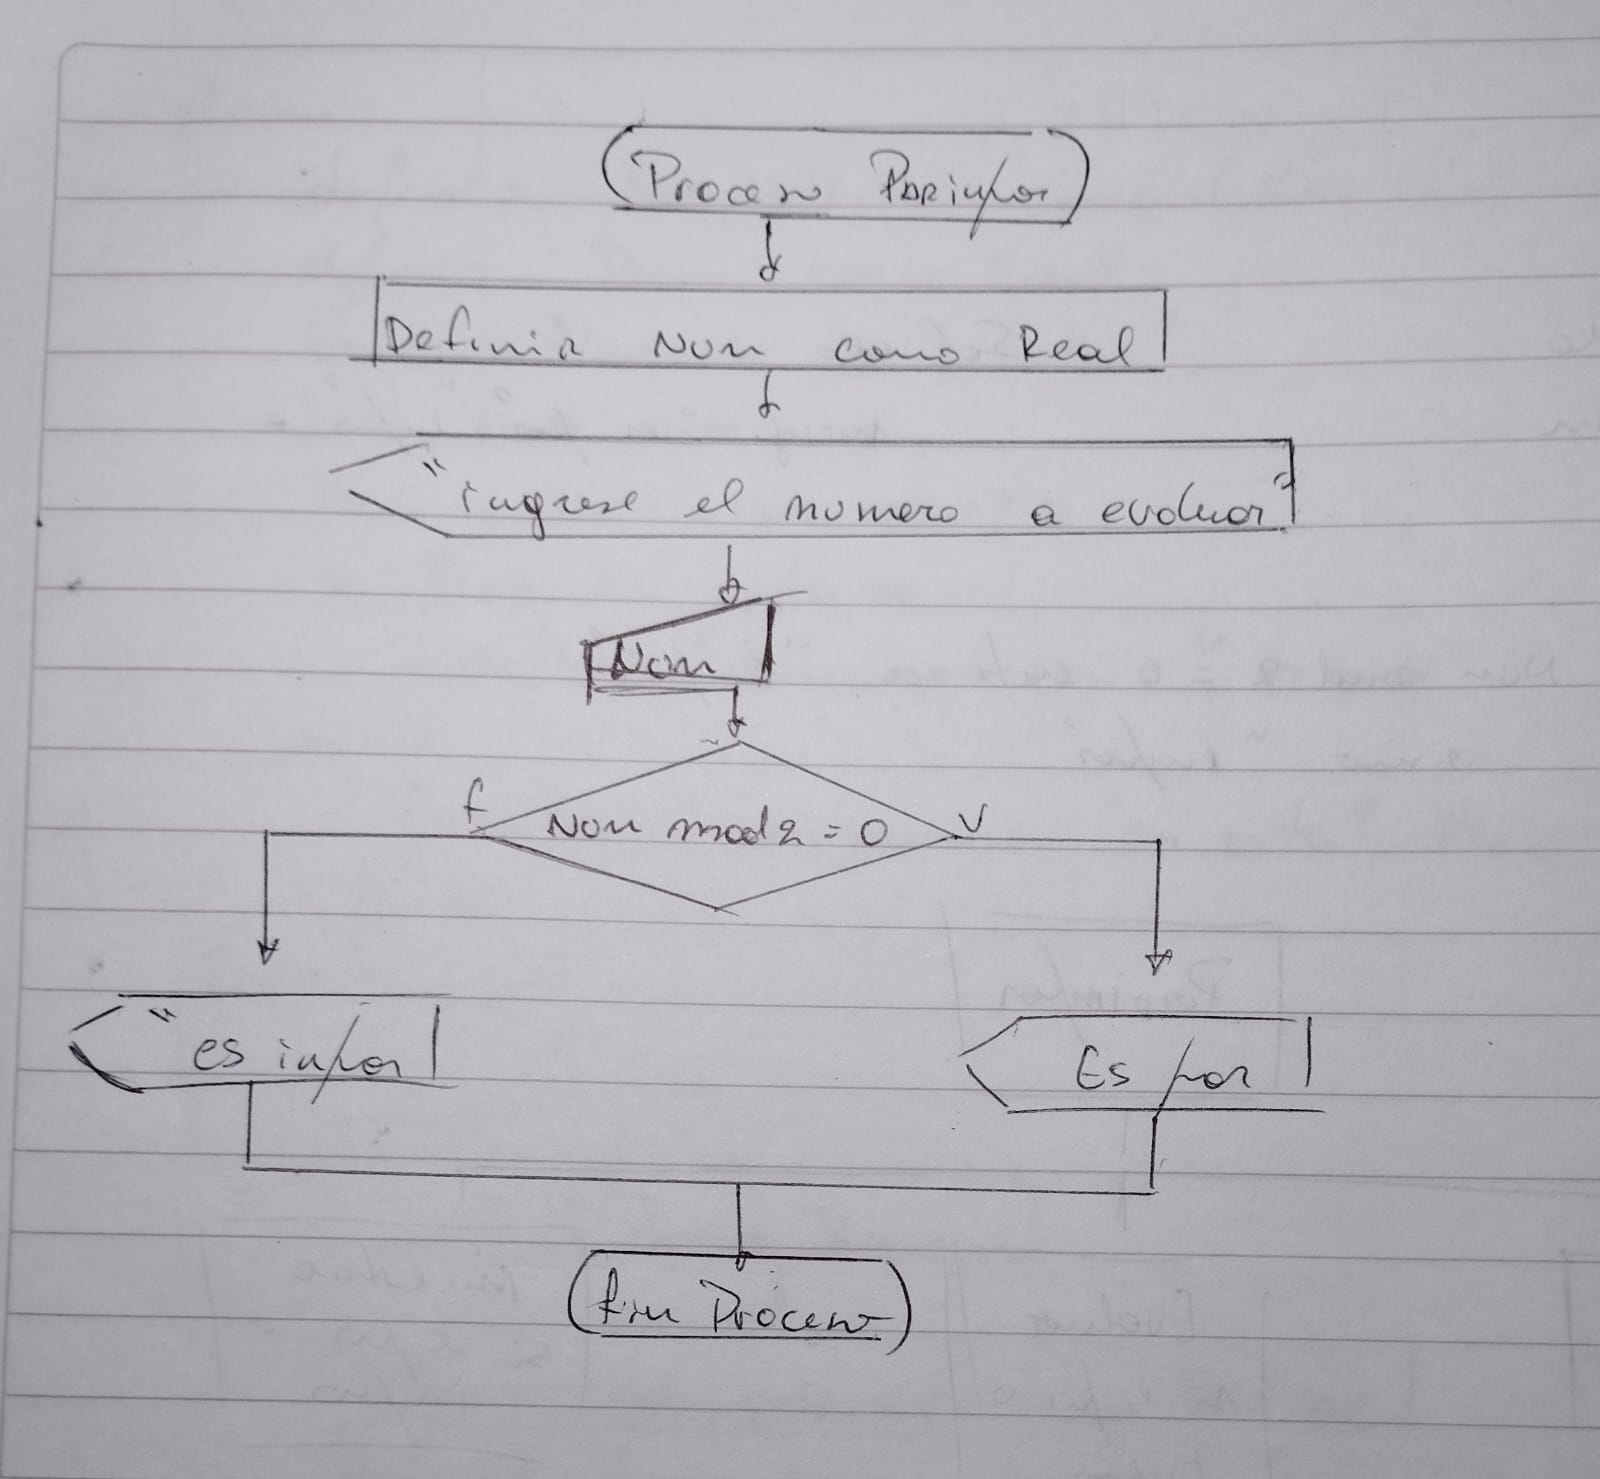 Proceso Parimpar
Definir Num como Real
"ingrese el numero a evaluar"
Num
f
Num mod 2 = 0
V
"es impar
Es par
fin Proceso